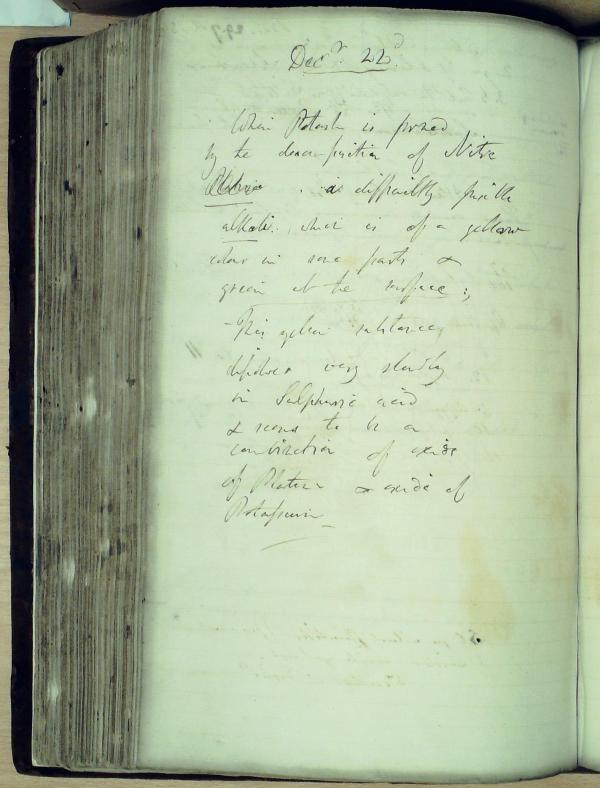 Decr. 22d.
When Potash is formed
by the decomposition of Nitre
is difficultly fusible
alkali. which is of a yellow
colour in some parts &
green at the surface;
This yellow substance,
dissolves very slowly
in Sulphuric acid
& seems to be a
combination of oxide
of Platina & oxide of
Potassium